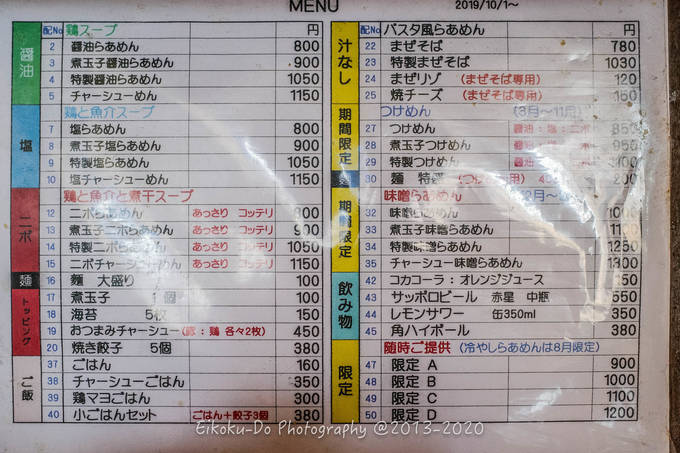 MENU
2019/10/1～
醤油
配No 鶏スープ 円
2 醤油らあめん 800
3 煮玉子醤油らあめん 900
4 特製醤油らあめん 1050
5 チャーシューめん 1150
塩
鶏と魚介スープ
7 塩らあめん 800
8 煮玉子塩らあめん 900
9 特製塩らあめん 1050
10 塩チャーシューめん 1150
ニボ
鶏と魚介と煮干スープ
12 ニボらあめん あっさり コッテリ 800
13 煮玉子ニボらあめん あっさり コッテリ 900
14 特製ニボらあめん あっさり コッテリ 1050
15 ニボチャーシューめん あっさり コッテリ 1150
麺
16 麺 大盛り 100
トッピング
17 煮玉子 1個 100
18 海苔 5枚 150
19 おつまみチャーシュー(豚：鶏 各々2枚) 450
20 焼き餃子 5個 380
ご飯
37 ごはん 160
38 チャーシューごはん 350
39 鶏マヨごはん 300
40 小ごはんセット ごはん＋餃子3個 380
汁なし
配No パスタ風らあめん 円
22 まぜそば 780
23 特製まぜそば 1030
24 まぜリゾ (まぜそば専用) 120
25 焼チーズ (まぜそば専用) 150
期間限定
つけめん (3月～11月)
27 つけめん 醤油：塩：ニボ 850
28 煮玉子つけめん 醤油：塩：ニボ 950
29 特製つけめん 醤油：塩：ニボ 1100
麺
30 麺 特盛 200
期間限定
味噌らあめん
32 味噌らあめん 1000
33 煮玉子味噌らあめん 1100
34 特製味噌らあめん 1250
35 チャーシュー味噌らあめん 1300
飲み物
42 コカコーラ：オレンジジュース 150
43 サッポロビール 赤星 中瓶 550
44 レモンサワー 缶350ml 350
45 角ハイボール 380
限定
随時ご提供 (冷やしらあめんは8月限定)
47 限定 A 900
48 限定 B 1000
49 限定 C 1100
50 限定 D 1200
Eikoku-Do Photography @2013-2020